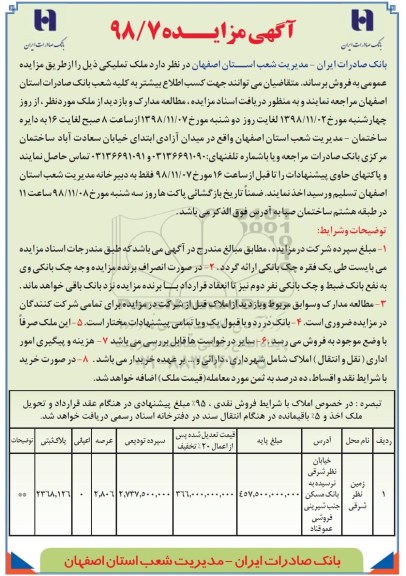 آگهی مزایده ۹۸/۷
بانک صادرات ایران
بانک صادرات ایران
بانک صادرات ایران - مدیریت شعب استان اصفهان در نظر دارد ملک تملیکی ذیل را از طریق مزایده
عمومی به فروش برساند. متقاضیان می توانند جهت کسب اطلاع بیشتر به کلیه شعب بانک صادرات استان
اصفهان مراجعه نمایند و به منظور دریافت اسناد مزایده، مطالعه مدارک و بازدید از ملک مورد نظر، از روز
چهارشنبه مورخ ۱۳۹۸/۱۱/۰۲ لغایت روز دو شنبه مورخ ۱۳۹۸/۱۱/۰۷ از ساعت ۸ صبح لغایت ۱۶ به دایره
ساختمان - مدیریت شعب استان اصفهان واقع در میدان آزادی ابتدای خیابان سعادت آباد ساختمان
مرکزی بانک صادرات مراجعه و یا باشماره تلفنهای: ۰۳۱۳۶۶۹۱۰۹۰ و ۰۳۱۳۶۶۹۱۰۹۱ تماس حاصل نمایند
و پاکتهای حاوی پیشنهادات را تا قبل از ساعت ۱۶ مورخ ۹۸/۱۱/۰۷ فقط به دبیرخانه مدیریت شعب استان
اصفهان تسلیم ورسید اخذ نمایند. ضمناً تاریخ بازگشائی پاکت ها روز سه شنبه مورخ ۹۸/۱۱/۰۸ ساعت ۱۱
در طبقه هشتم ساختمان صبا به آدرس فوق الذکر می باشد.
توضیحات و شرایط:
۱- مبلغ سپرده شرکت در مزایده، مطابق مبالغ مندرج در آگهی می باشد که طبق مندرجات اسناد مزایده
می بایست طی یک فقره چک بانکی ارائه گردد. ۲- در صورت انصراف برنده مزایده وجه چک بانکی وی
به نفع بانک ضبط و چک بانکی نفر دوم نیز تا انعقاد قرارداد بــا برنده مزایده نزد بانک باقی خواهد ماند.
۳- مطالعه مدارک و سوابق مربوط و بازدید از املاک قبل از شرکت در مزایده برای تمامی شرکت کنندگان
در مزایده ضروری است. ۴- بانک در رد و یا قبول یک و یا تمامی پیشنهادات مختار است. ۵- این ملک صرفاً
با وضع موجود به فروش می رسد. ۶- سایر درخواست ها قابل بررسی می باشد. ۷- هزینه و پیگیری امور
اداری (نقل و انتقال) املاک شامل شهرداری، دارائی و... بر عهده خریدار می باشد. ۸- در صورت خرید
با شرایط نقد و اقساط، ده درصد به ثمن مورد معامله (قیمت ملک) اضافه خواهد شد.
تبصره: در خصوص املاک با شرایط فروش نقدی، ۹۵٪ مبلغ پیشنهادی در هنگام عقد قرارداد و تحویل
ملک اخذ و ۵٪ باقیمانده در هنگام انتقال سند در دفترخانه اسناد رسمی دریافت خواهد شد.
ردیف نام محل آدرس مبلغ پایه قیمت تعدیل شده پس از اعمال ۲۰٪ تخفیف سپرده تودیعی عرصه اعیانی پلاک ثبتی توضیحات
۱ زمین نظر شرقی خیابان نظر شرقی نرسیده به بانک مسکن جنب شیرینی فروشی عمو قناد ۴۵۷,۵۰۰,۰۰۰,۰۰۰ ۳۶۶,۰۰۰,۰۰۰,۰۰۰ ۲,۷۳۷,۵۰۰,۰۰۰ ۲,۸۰۶ ۰ ۲۳۶۸,۱۲۶ **
بانک صادرات ایران - مدیریت شعب استان اصفهان